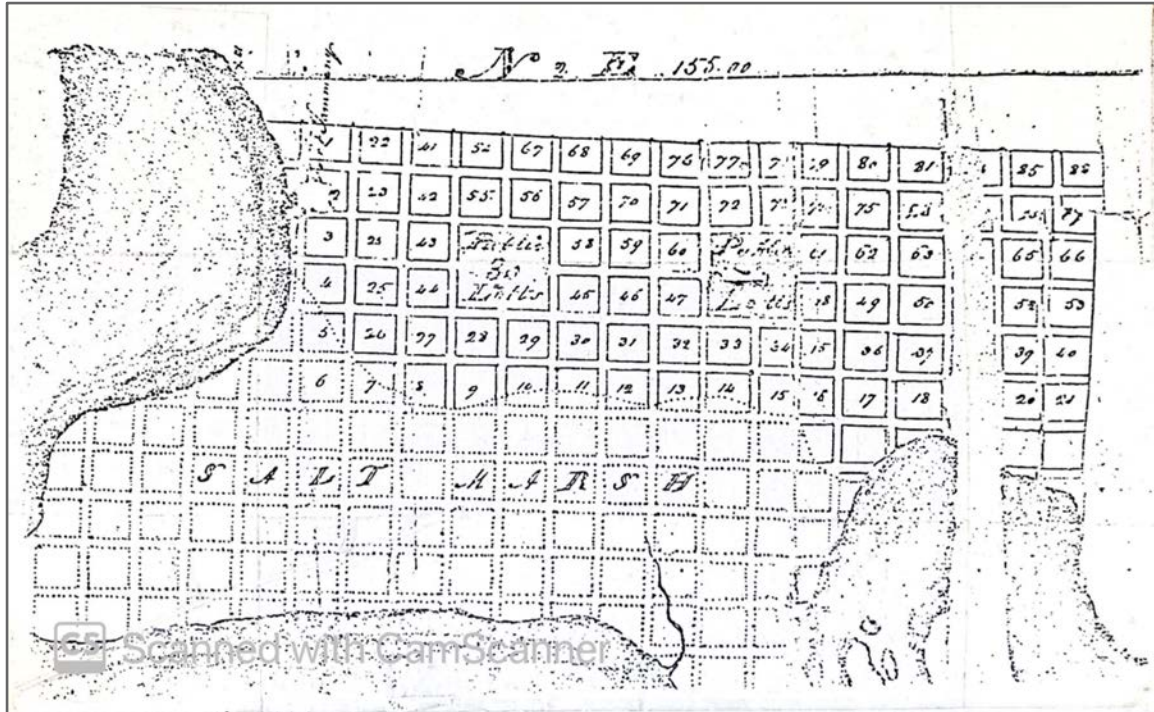 155.00
1 22 41 54 67 68 69 76 77 7 79 80 81 85 86
2 23 42 55 56 57 70 71 72 75
3 43 Public 58 59 60 61 62 63 65 66
4 25 44 Lotts 45 46 47 Lotts 49 50 52 53
5 26 27 28 29 30 31 32 33 34 36 37 39 40
6 7 8 9 10 11 12 13 14 15 16 17 18 20 21
SALT MARSH
CS Scanned with CamScanner